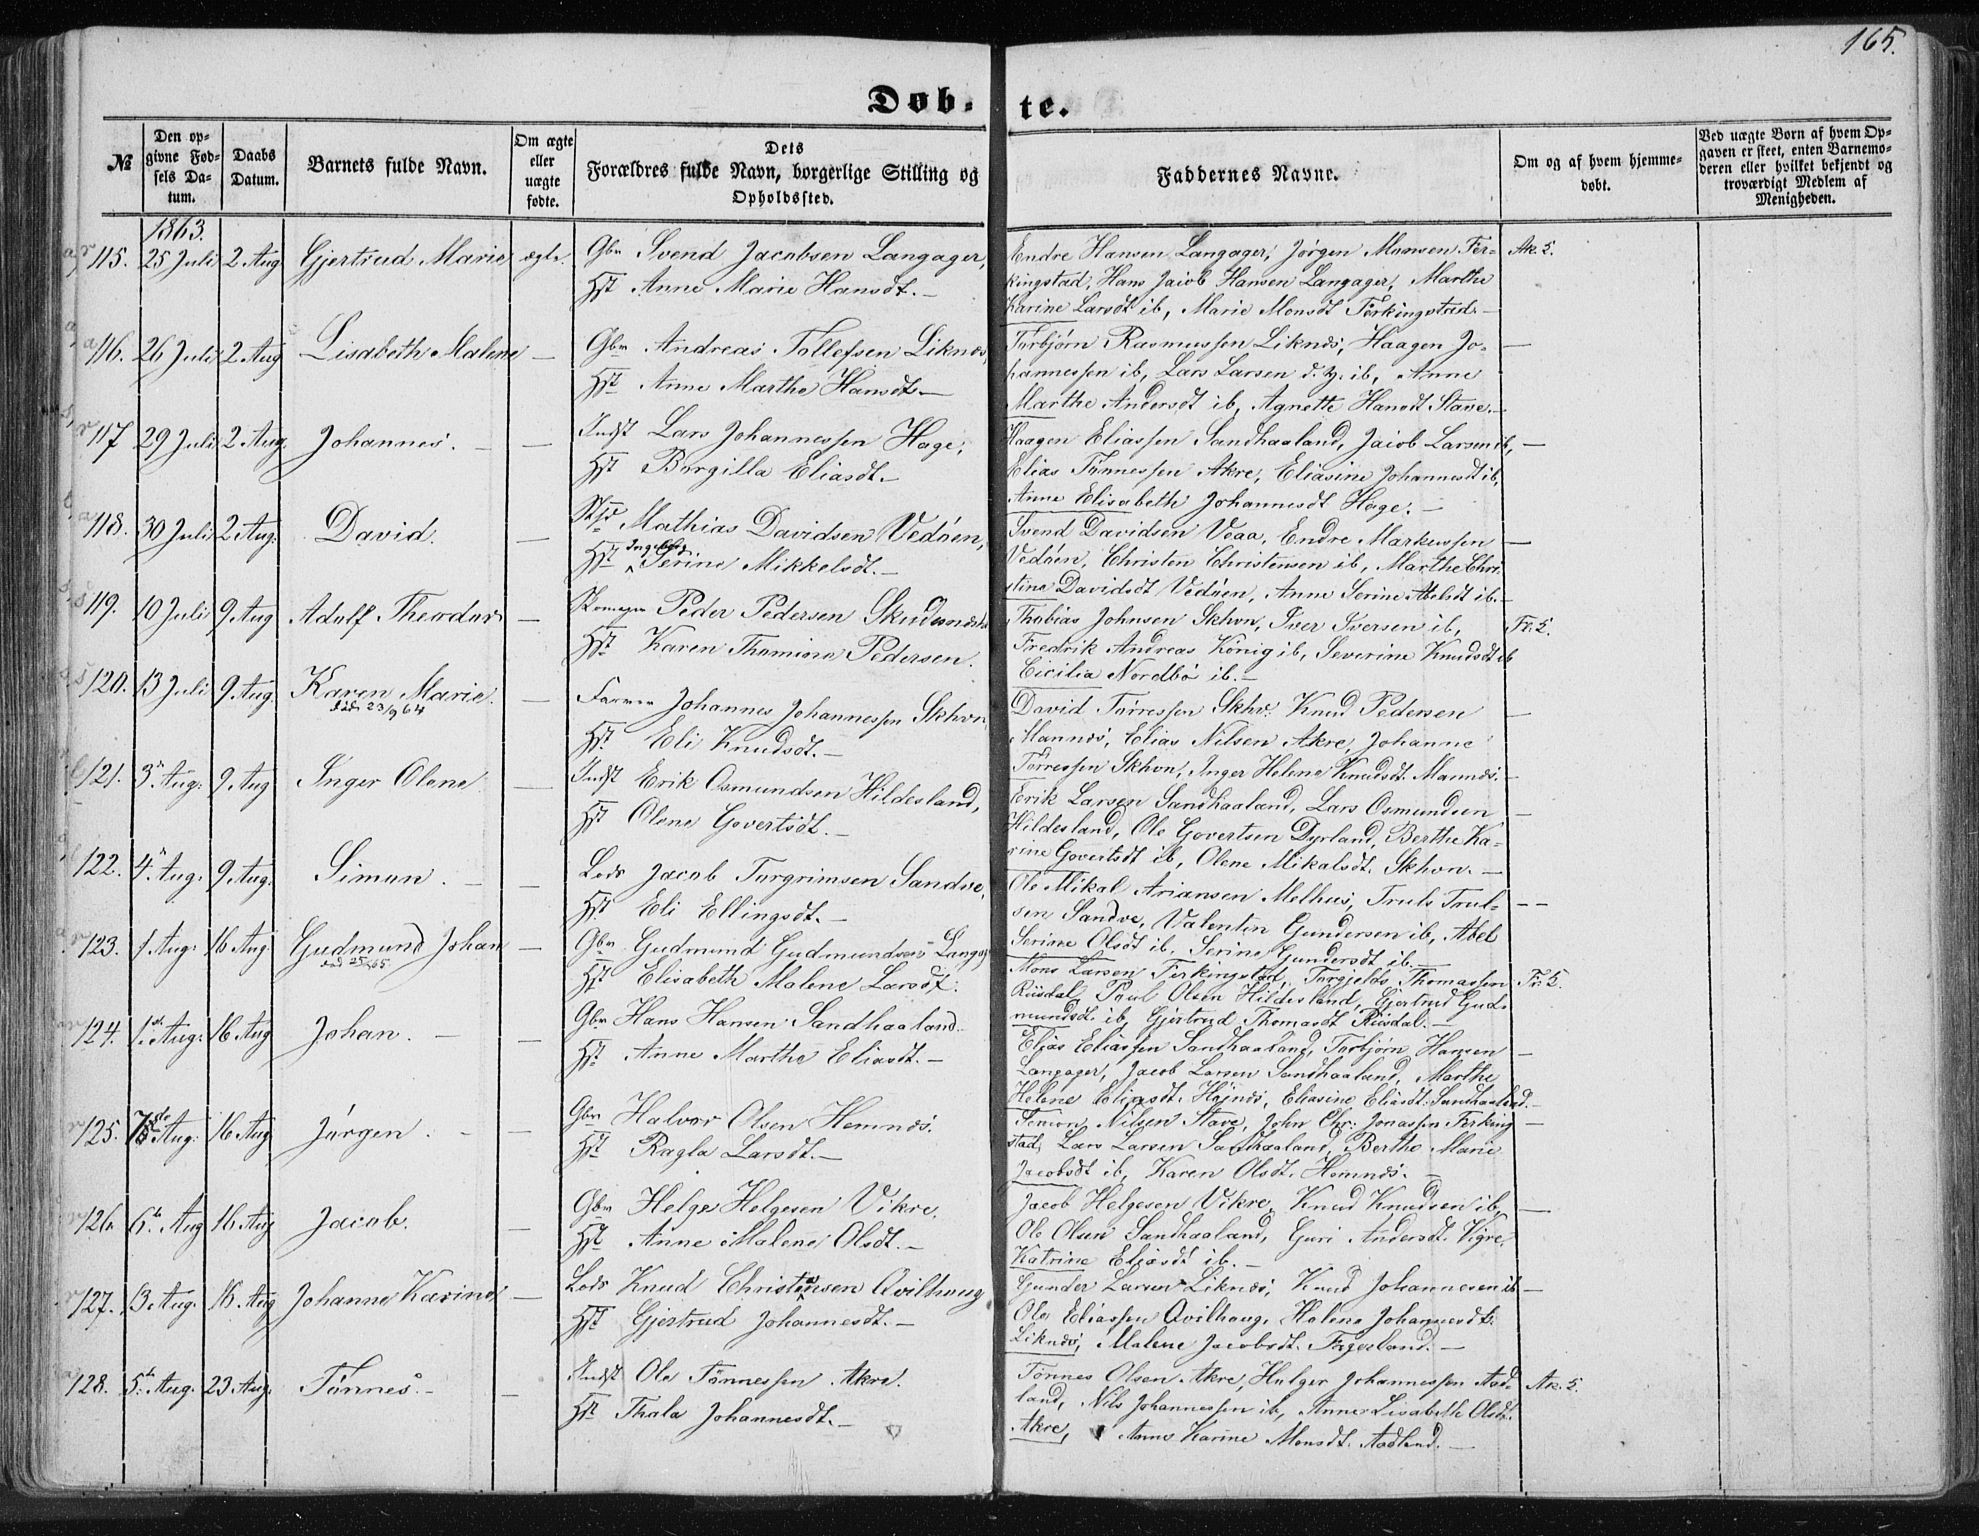 165.
Døb- te.
№ Den opgivne Fødsels Datum. Daabs Datum. Barnets fulde Navn. Om ægte eller uægte fødte. Dets Forældres fulde Navn, borgerlige Stilling og Opholdssted. Faddernes Navne. Om og af hvem hjemmedøbt. Ved uægte Børn af hvem Opgaven er skeet, enten Barnemoderen eller hvilket bekjendt og troværdigt Medlem af Menigheden.
1863.
115. 25 Juli 2 Aug Gjertrud Marie ægte. Gbr Svend Jacobsen Langager,
Hst Anne Marie Hansdt. —
Endre Hansen Langager, Jørgen Monsen Fer- Ak. 5.
kingstad, Hans Jacob Hansen Langager, Marthe
Karine Larsdt ib, Marie Monsdt Ferkingstad. —
116. 26 Juli 2 Aug Lisabeth Malene — Gbr Andreas Tollefsen Liknæs,
Hst Anne Marthe Hansdt —
Torbjørn Rasmussen Liknæs, Haagen Jo- —
hannessen ib, Lars Larsen d. y. ib, Anne
Marthe Andersdt ib, Agnethe Hansdt Stave. —
117 29 Juli 2 Aug. Johannes. — — Indst Lars Johannessen Hage,
Hst Borgilla Eliasdt. —
Haagen Eliassen Sandhaaland, Jacob Larsen ib, —
Elias Tønnessen Akre, Eliasine Johannesdt ib,
Anne Elisabeth Johannesdt Hage. —
118. 30 Juli 2 Aug. David. — Mathias Davidsen Vedøen,
Hst Ingeborg Serine Mikkelsdt. —
Svend Davidsen Veaa, Endre Markussen —
Vedøen, Christen Christensen ib, Marthe Chri-
stine Davidsdt Vedøen, Anne Serine Abelsdt ib. —
119. 10 Juli 9 Aug Adolf Theodor — Skomager Peder Pedersen
Hst Karen Thomine Pedersen.
Thobias Johnsen Skhvn, Iver Iversen ib, Fr. 5.
Fredrik Andreas König ib, Severine Knudsdt ib
Cicilia Nordbø ib. —
120. 13 Juli 9 Aug. Karen Marie. — Johannes Johannessen Skhvn
død 23/9 64
Hst Eli Knudsdt. —
David Tørressen Skhv. Knud Pedersen —
Mannæs, Elias Nilsen Akre, Johanne
Tørressen Skhvn, Inger Helene Knudsdt. Mannæs. —
121. 3. Aug. 9 Aug Inger Olene — Indst Erik Osmundsen Hildesland,
Hst Olene Govertsdt. —
Erik Larsen Sandhaaland, Lars Osmundsen —
Hildesland, Ole Govertsen Dyrland, Berthe Ka-
rine Govertsdt ib, Olene Mikalsdt. Skhvn. —
122. 4. Aug. 9 Aug. Simon. — — Lods Jacob Torgrimsen Sandve,
Hst. Eli Ellingsdt. —
Ole Mikal Ariansen Melhus, Truls Trul- — —
sen Sandve, Valentin Gundersen ib, Abel
Serine Olsdt ib, Serine Gundersdt ib. —
123. 1. Aug. 16 Aug Gudmund Johan — Gbr. Gudmund Gudmundsen
Hst Elisabeth Malene Larsdt.
Mons Larsen Ferkingstad, Torgjelds Thomassen Fr. 5.
Riisdal, Paul Olsen Hildesland, Gjertrud Gud-
mundsdt. ib, Gjertrud Thomasdt Riisdal. —
124. 1. Aug. 16 Aug Johan. — — Gbr Hans Hansen Sandhaaland.
Hst. Anne Marthe Eliasdt. —
Elias Eliassen Sandhaaland, Torbjørn Hansen —
Langager, Jacob Larsen Sandhaaland, Marthe
Helene Eliasdt. Høinæs, Eliasine Eliasdt. Sandhaaland. —
125. Aug. 16 Aug Jørgen. — — Gbr Halvor Olsen Hemnæs.
Hst Ragla Larsdt. —
Simon Nilsen Stave, John Chr. Jonassen Ferking- —
stad, Lars Larsen Sandhaaland, Berthe Marie
Jacobsdt ib, Karen Olsdt. Hemnæs. —
126 6. Aug 16 Aug Jacob. — Gbr Helge Helgesen Vikre.
Hst Anne Malene Olsdt. —
Jacob Helgesen Vikre, Knud Knudsen ib, —
Ole Olsen Sandhaaland, Guri Andersdt. Vigre,
Katrine Eliasdt ib. —
127. 13. Aug. 16. Aug Johanne Karine — Lods Knud Christensen Qvilhaug
Hst Gjertrud Johannesdt. —
Gunder Larsen Liknæs, Knud Johannesen ib —
Ole Eliassen Qvilhaug, Helene Johannesdt.
Liknæs, Malene Jacobsdt. Fagerland. —
128. 5. Aug. 23 Aug. Tønnes. — — Indst Ole Tønnessen Akre.
Hst Thala Johannesdt. —
Tønnes Olsen Akre, Holger Johannessen Aad- Ak. 5.
land, Nils Johannessen ib, Anne Lisabeth Olsdt.
Akre, Anne Karine Monsdt. Aadland. —